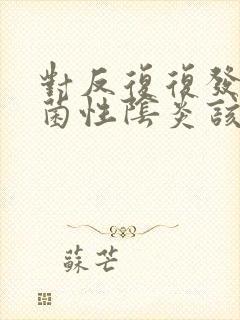 對反復復發
菌性陰炎該
蘇芒